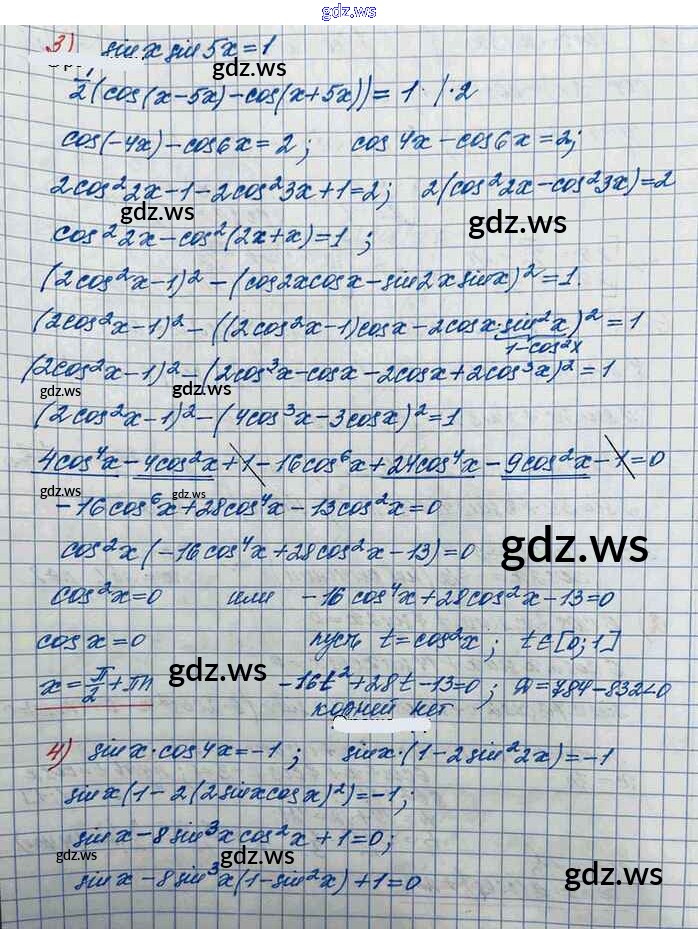 gdz.ws
3) sin x sin 5x = 1
gdz.ws
1/2 (cos(x-5x) - cos(x+5x)) = 1 · | · 2
cos(-4x) - cos6x = 2 ; cos 4x - cos6x = 2;
2cos²2x - 1 - 2cos²3x + 1 = 2; 2(cos²2x - cos²3x) = 2
gdz.ws gdz.ws
cos²2x - cos²(2x+x) = 1 ;
(2cos²x - 1)² - (cos2x cosx - sin2x sinx)² = 1.
(2cos²x - 1)² - ((2cos²x - 1)cosx - 2cosx · sin²x)² = 1
1-cos²x
(2cos²x - 1)² - (2cos³x - cosx - 2cosx + 2cos³x)² = 1
gdz.ws gdz.ws
(2cos²x - 1)² - (4cos³x - 3cosx)² = 1
4cos⁴x - 4cos²x + 1 - 16cos⁶x + 24cos⁴x - 9cos²x - 1 = 0
gdz.ws gdz.ws
-16cos⁶x + 28cos⁴x - 13cos²x = 0
cos²x (-16cos⁴x + 28cos²x - 13) = 0
gdz.ws
cos²x = 0 или -16cos⁴x + 28cos²x - 13 = 0
cos x = 0 пусть t = cos²x ; t ∈ [0; 1]
x = π/2 + πn -16t² + 28t - 13 = 0 ; D = 784 - 832 < 0
gdz.ws gdz.ws
корней нет
4) sinx · cos4x = -1 ; sinx · (1 - 2sin²2x) = -1
sinx (1 - 2(2sinxcosx)²) = -1 ;
sinx - 8sin³x cos²x + 1 = 0;
gdz.ws gdz.ws gdz.ws
sinx - 8sin³x(1 - sin²x) + 1 = 0